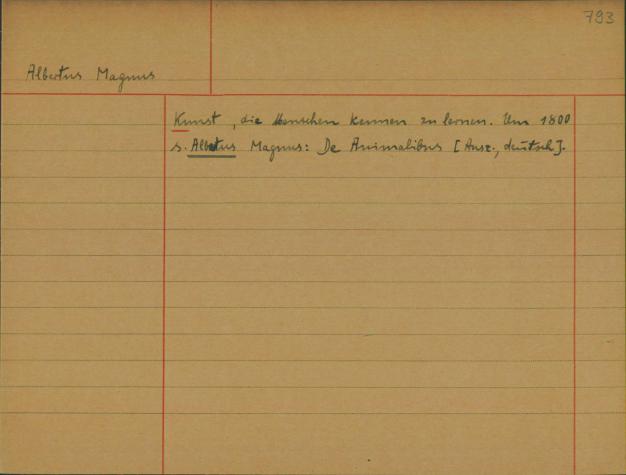 793
Albertus Magnus
Kunst, die Menschen kennen zu lernen. Um 1800
s. Albertus Magnus: De Animalibus [Ausz., deutsch].